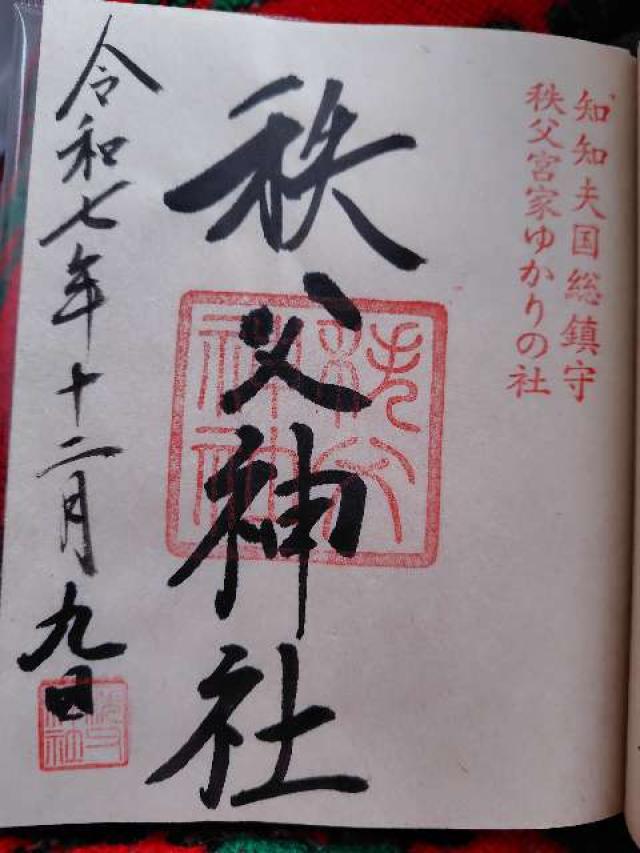 知知夫国総鎮守
秩父宮家ゆかりの社
秩父神社
秩父神社
令和七年十二月九日